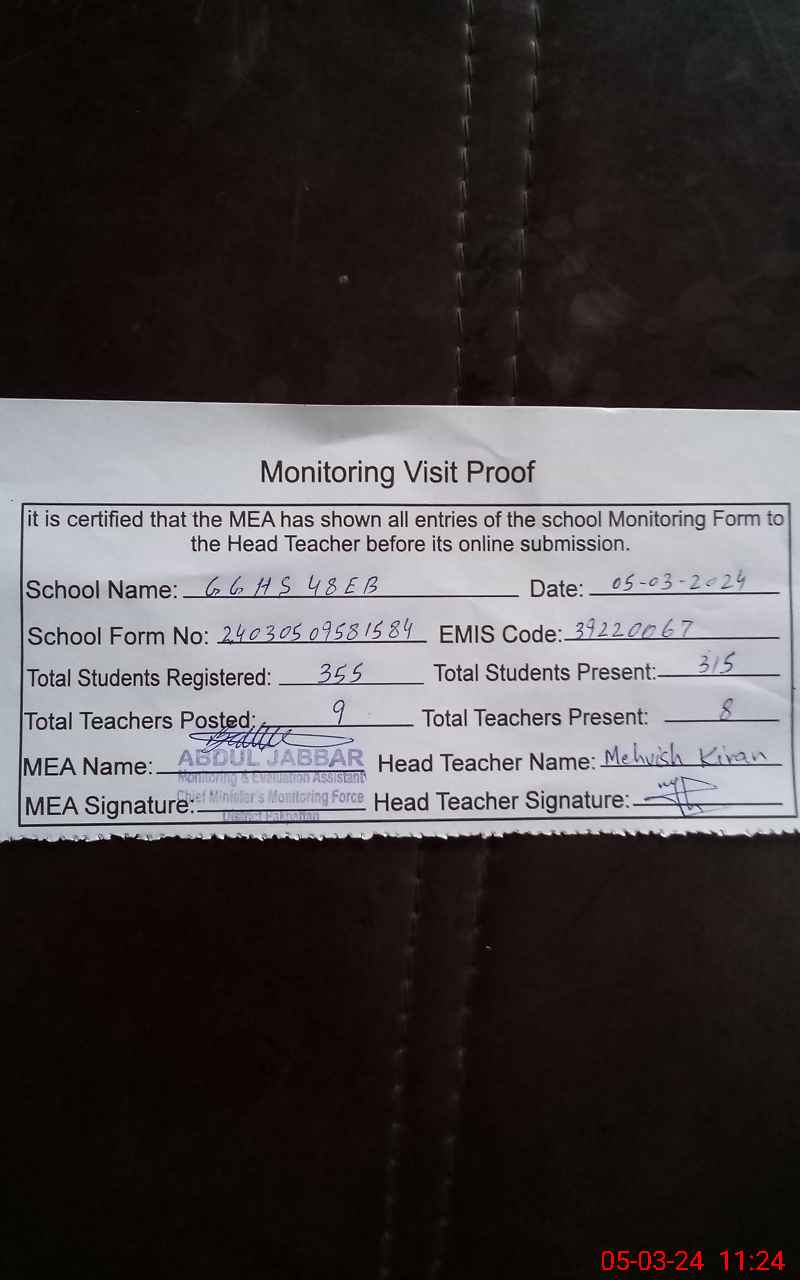 Monitoring Visit Proof
it is certified that the MEA has shown all entries of the school Monitoring Form to
the Head Teacher before its online submission.
School Name: GGHS 48EB Date: 05-03-2024
School Form No: 24030509581584 EMIS Code: 39220067
Total Students Registered: 355 Total Students Present: 315
Total Teachers Posted: 9 Total Teachers Present: 8
MEA Name: ABDUL JABBAR Head Teacher Name: Mehvish Kiran
Monitoring & Evaluation Assistant
MEA Signature: Chief Minister's Monitoring Force Head Teacher Signature:
District Pakpattan
05-03-24 11:24